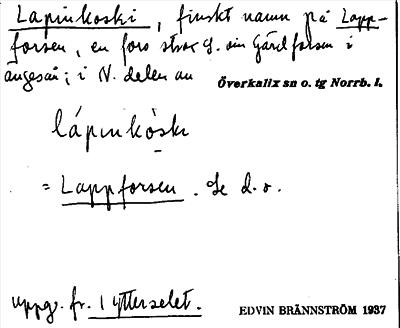 Lapinkoski, finskt namn på Lapp-
forsen, en fors strax S. om Gårdforsen i
ängesån; i N. delen av Överkalix sn o. tg Norrb. l.
lápinkòski
= Lappforsen. Se d. o.
uppg. fr. 1 ytterselet. EDVIN BRÄNNSTRÖM 1937